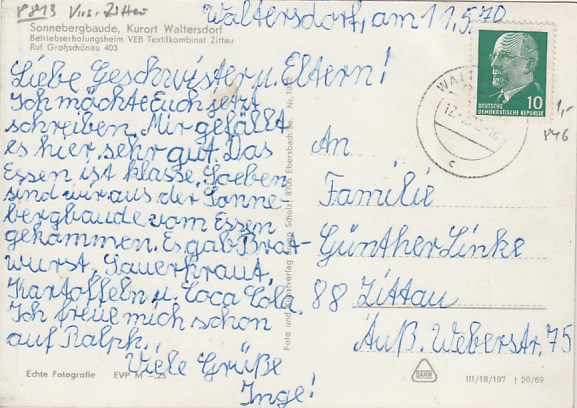 8813 Vus. Zittau
Waltersdorf, am 11.5.70
Sonnebergbaude, Kurort Waltersdorf
Betriebserholungsheim VEB Textilkombinat Zittau
Ruf Großschönau 403
Liebe Geschwister u. Eltern!
Ich möchte Euch jetzt
schreiben. Mir gefällt
es hier sehr gut. Das
Essen ist klasse. Soeben
sind wir aus der Sonne
bergbaude vom Essen
gekommen. Es gab Brat-
wurst, Sauerkraut,
Kartoffeln u. Coca Cola.
Ich freue mich schon
auf Ralph.
Viele Grüße
Inge!
Echte Fotografie EVP M -,25
Foto und Kunstverlag Scholz, 8705 Ebersbach
DEUTSCHE
DEMOKRATISCHE REPUBLIK
10
WALT
12.
c
1,-
846
An
Familie
Günther Linke
88 Zittau
Äuß. Weberstr. 75
III/18/197 J 20/69